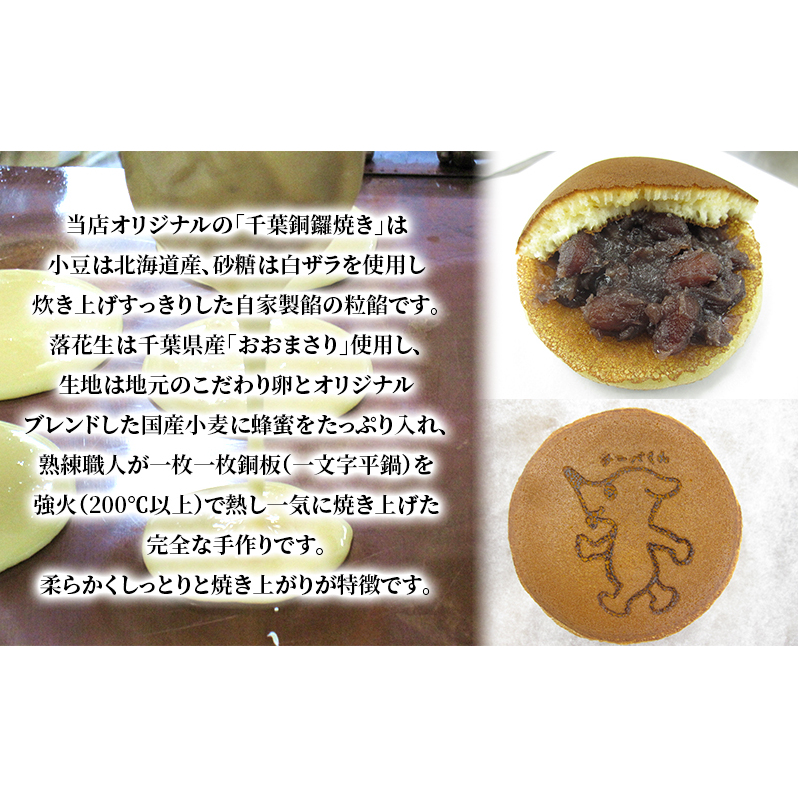 当店オリジナルの「千葉銅鑼焼き」は
小豆は北海道産、砂糖は白ザラを使用し
炊き上げすっきりした自家製餡の粒餡です。
落花生は千葉県産「おおまさり」使用し、
生地は地元のこだわり卵とオリジナル
ブレンドした国産小麦に蜂蜜をたっぷり入れ、
熟練職人が一枚一枚銅板(一文字平鍋)を
強火(200℃以上)で熱し一気に焼き上げた
完全な手作りです。
柔らかくしっとりと焼き上がりが特徴です。
チーバくん